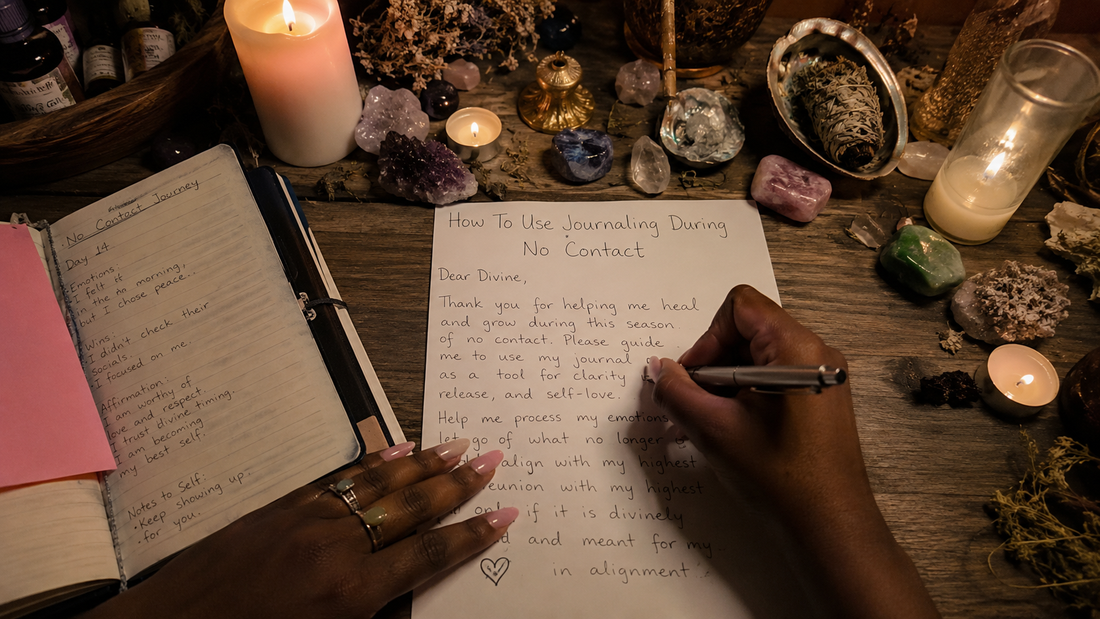 No Contact Journey
Day 14
Emotions:
I felt it
in the morning,
but I chose peace...
Wins:
I didn't check their
socials.
I focused on me.
Affirmation:
I am worthy of
love and respect
I trust divine timing
I am becoming
my best self.
Notes to Self:
• Keep showing up
• for you.
How To Use Journaling During
No Contact
Dear Divine,
Thank you for helping me heal
and grow during this season
of no contact. Please guide
me to use my journal
as a tool for clarity
release, and self-love.
Help me process my emotions
let go of what no longer
align with my highest
eunion with my highest
only if it is divinely
and meant for my
in alignment